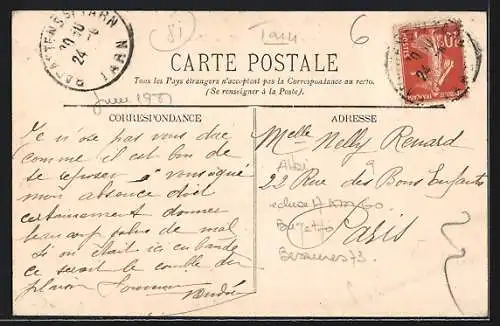 RABASTENS S/ TARN
TARN
24
81
Tarn
6
CARTE POSTALE
Tous les Pays étrangers n'acceptent pas la Correspondance au recto.
(Se renseigner à la Poste).
CORRESPONDANCE
Je n'ose pas vous dire
comme il est bon de
se reposer à vous qui
mon absence doit
certainement donner
beaucoup plus de mal
Si on était ici en bande
ce serait le comble du
plaisir
ADRESSE
Melle Nelly Renard
22 Rue des Bons Enfants
Paris